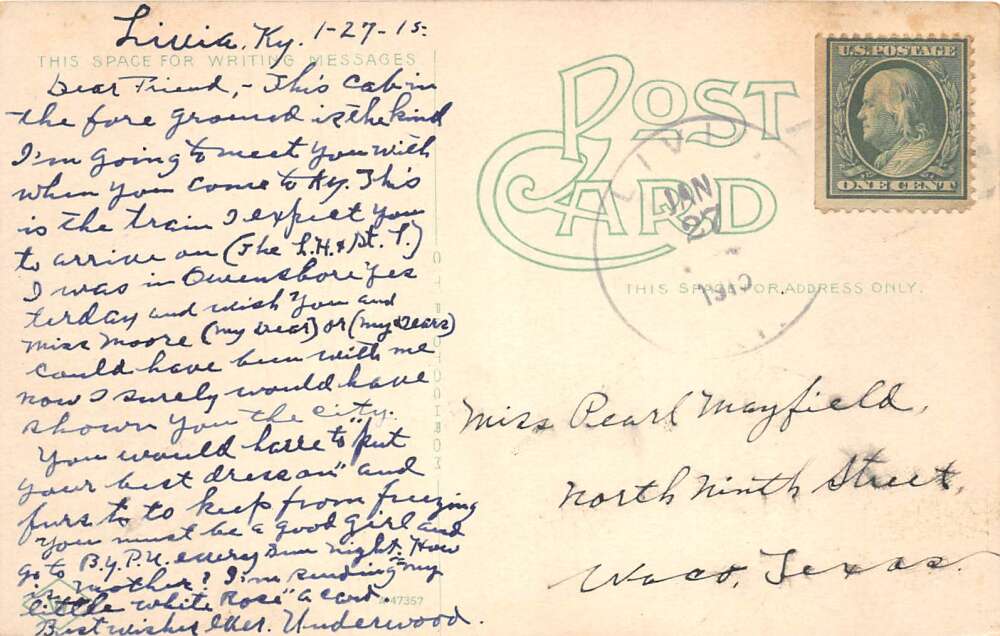 Livia, Ky. 1-27-15.
THIS SPACE FOR WRITING MESSAGES
Dear Friend,- This cab in
the fore ground is the kind
I'm going to meet you with
when you come to Ky. This
is the train I expect you
to arrive on (The L.H. & St. L.)
I was in Owensboro yes
terday and wish you and
Miss Moore (my dear) or (my dears)
could have been with me
now I surely would have
shown you the city.
You would have to "put
your best dress on" and
furs to to keep from freezing
You must be a good girl and
go to B.Y.P.U. every Sun night. How
is mother? I'm sending "my
little white Rose" a card.
Best wishes Ever. Underwood.
47357
POST
CARD
U.S. POSTAGE
ONE CENT
LIVI
JAN
27
THIS SPACE FOR ADDRESS ONLY.
Miss Pearl Mayfield,
North Ninth Street,
Waco, Texas.